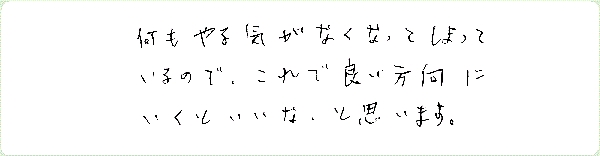 何もやる気がなくなってしまって
いるので、これで良い方向に
いくといいな、と思います。